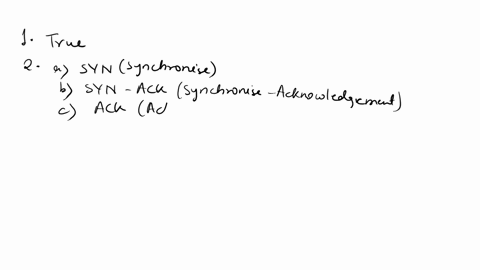 1. True
2. a) SYN (Synchronise)
b) SYN - ACK (Synchronise - Acknowledgement)
c) ACK (Ac